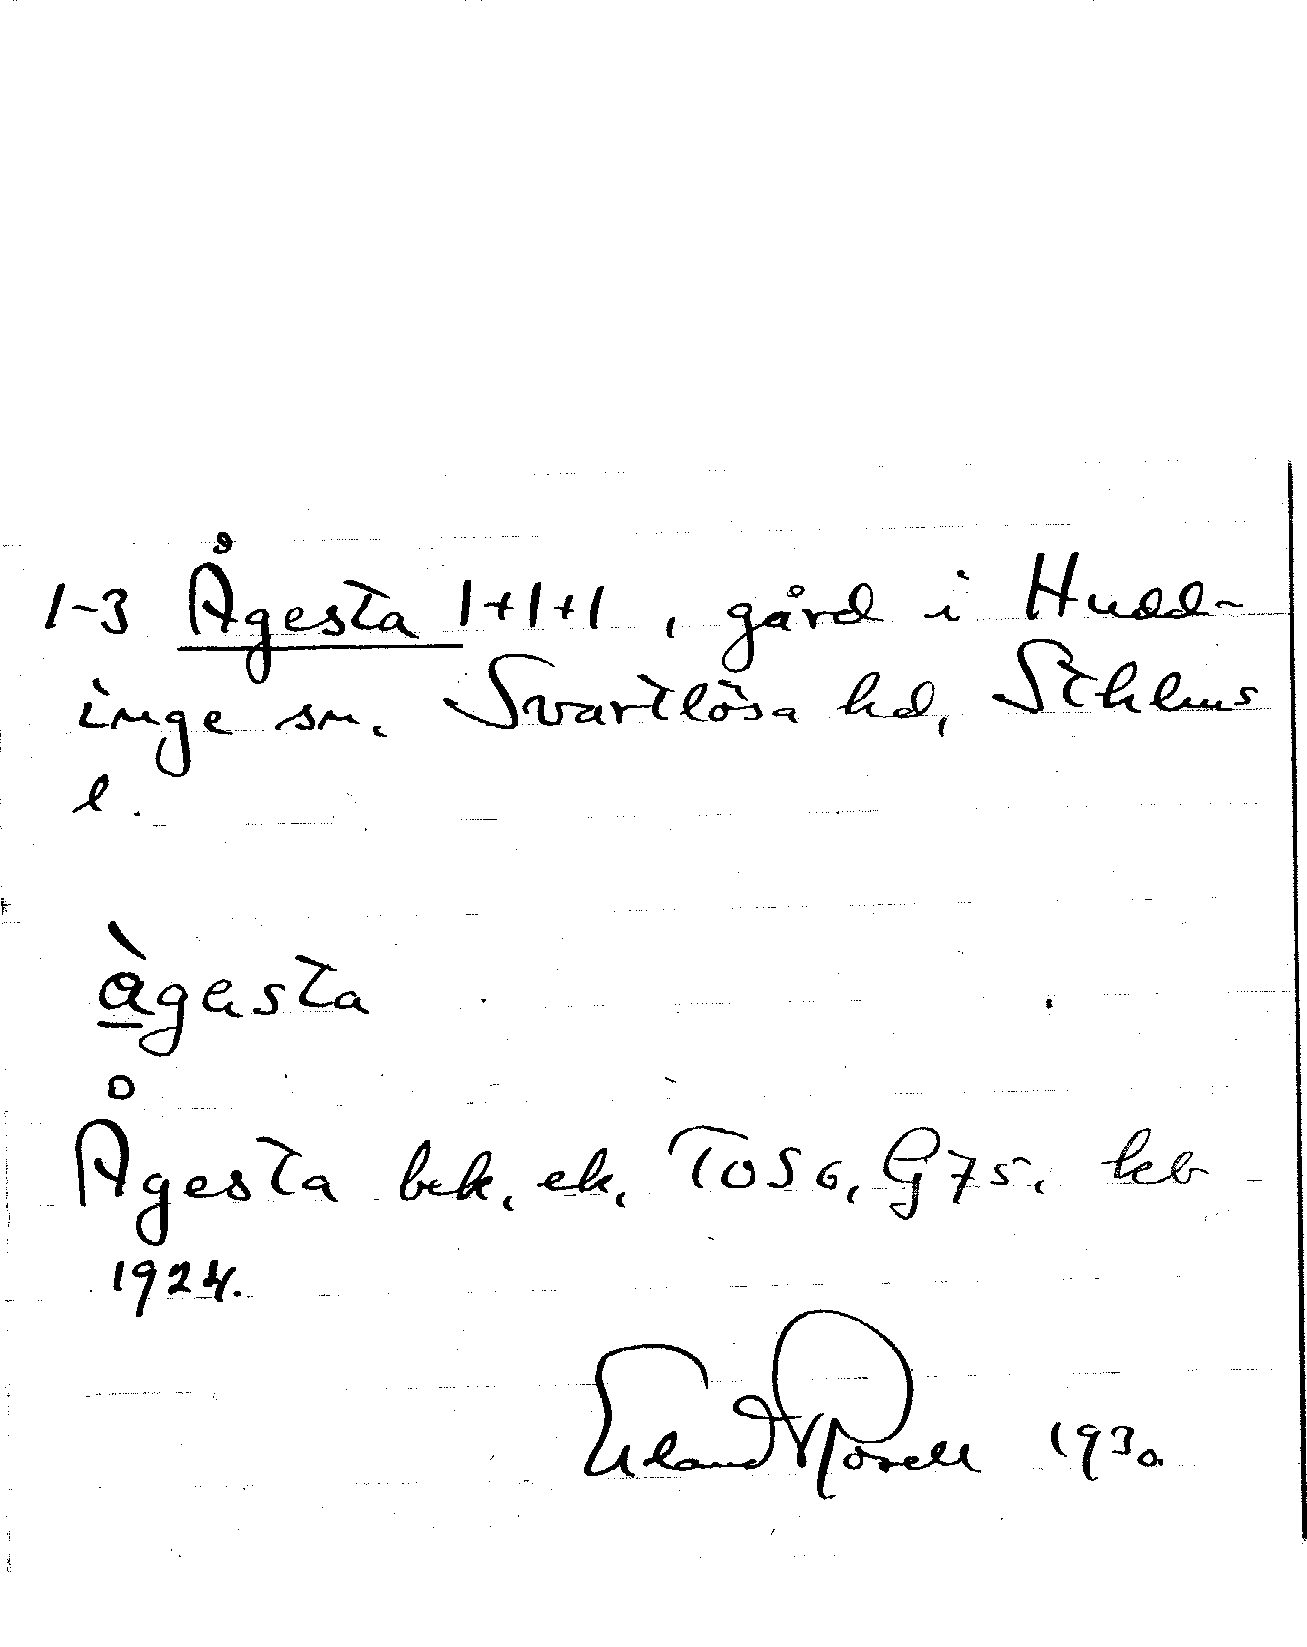 1-3 Ågesta 1+1+1, gård i Hudd-
inge sn. Svartlösa hd, Sthlms
l.
àgesta
Ågesta bek. ek. TOS6, G75, kb
1924.
Erland Rosell 1930.